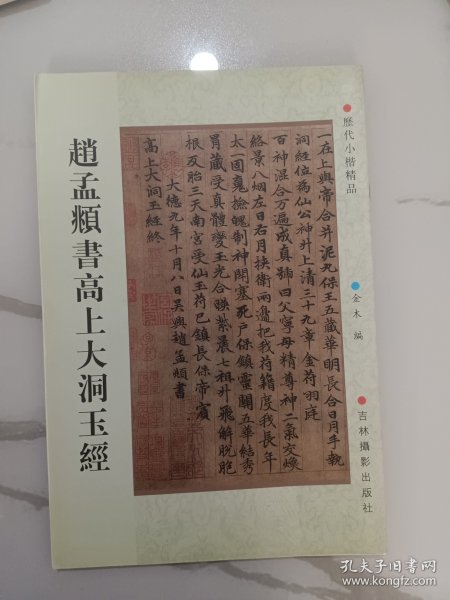 歷代小楷精品
金木 編
吉林攝影出版社
趙孟頫書高上大洞玉經
一在上與帝合并泥丸保王五藏華明長合日月手執
洞經位為仙公神升上清三十九章金符羽庭
百神混合万遍成真號曰父寧母精尊神二氣交煥
絡景八烟左日右月挾衛兩邊把我符籍度我長年
太一固魂撿魄制神閉塞死戶保鎮靈關五華結秀
胃藏受真體變玉光合映紫晨七祖升飛解脫胞
根反胎三天南宮受仙玉符巳鎮長保帝賓
大德九年十月八日吳興趙孟頫書
高上大洞玉經終
孔夫子旧书网
www.kongfz.com